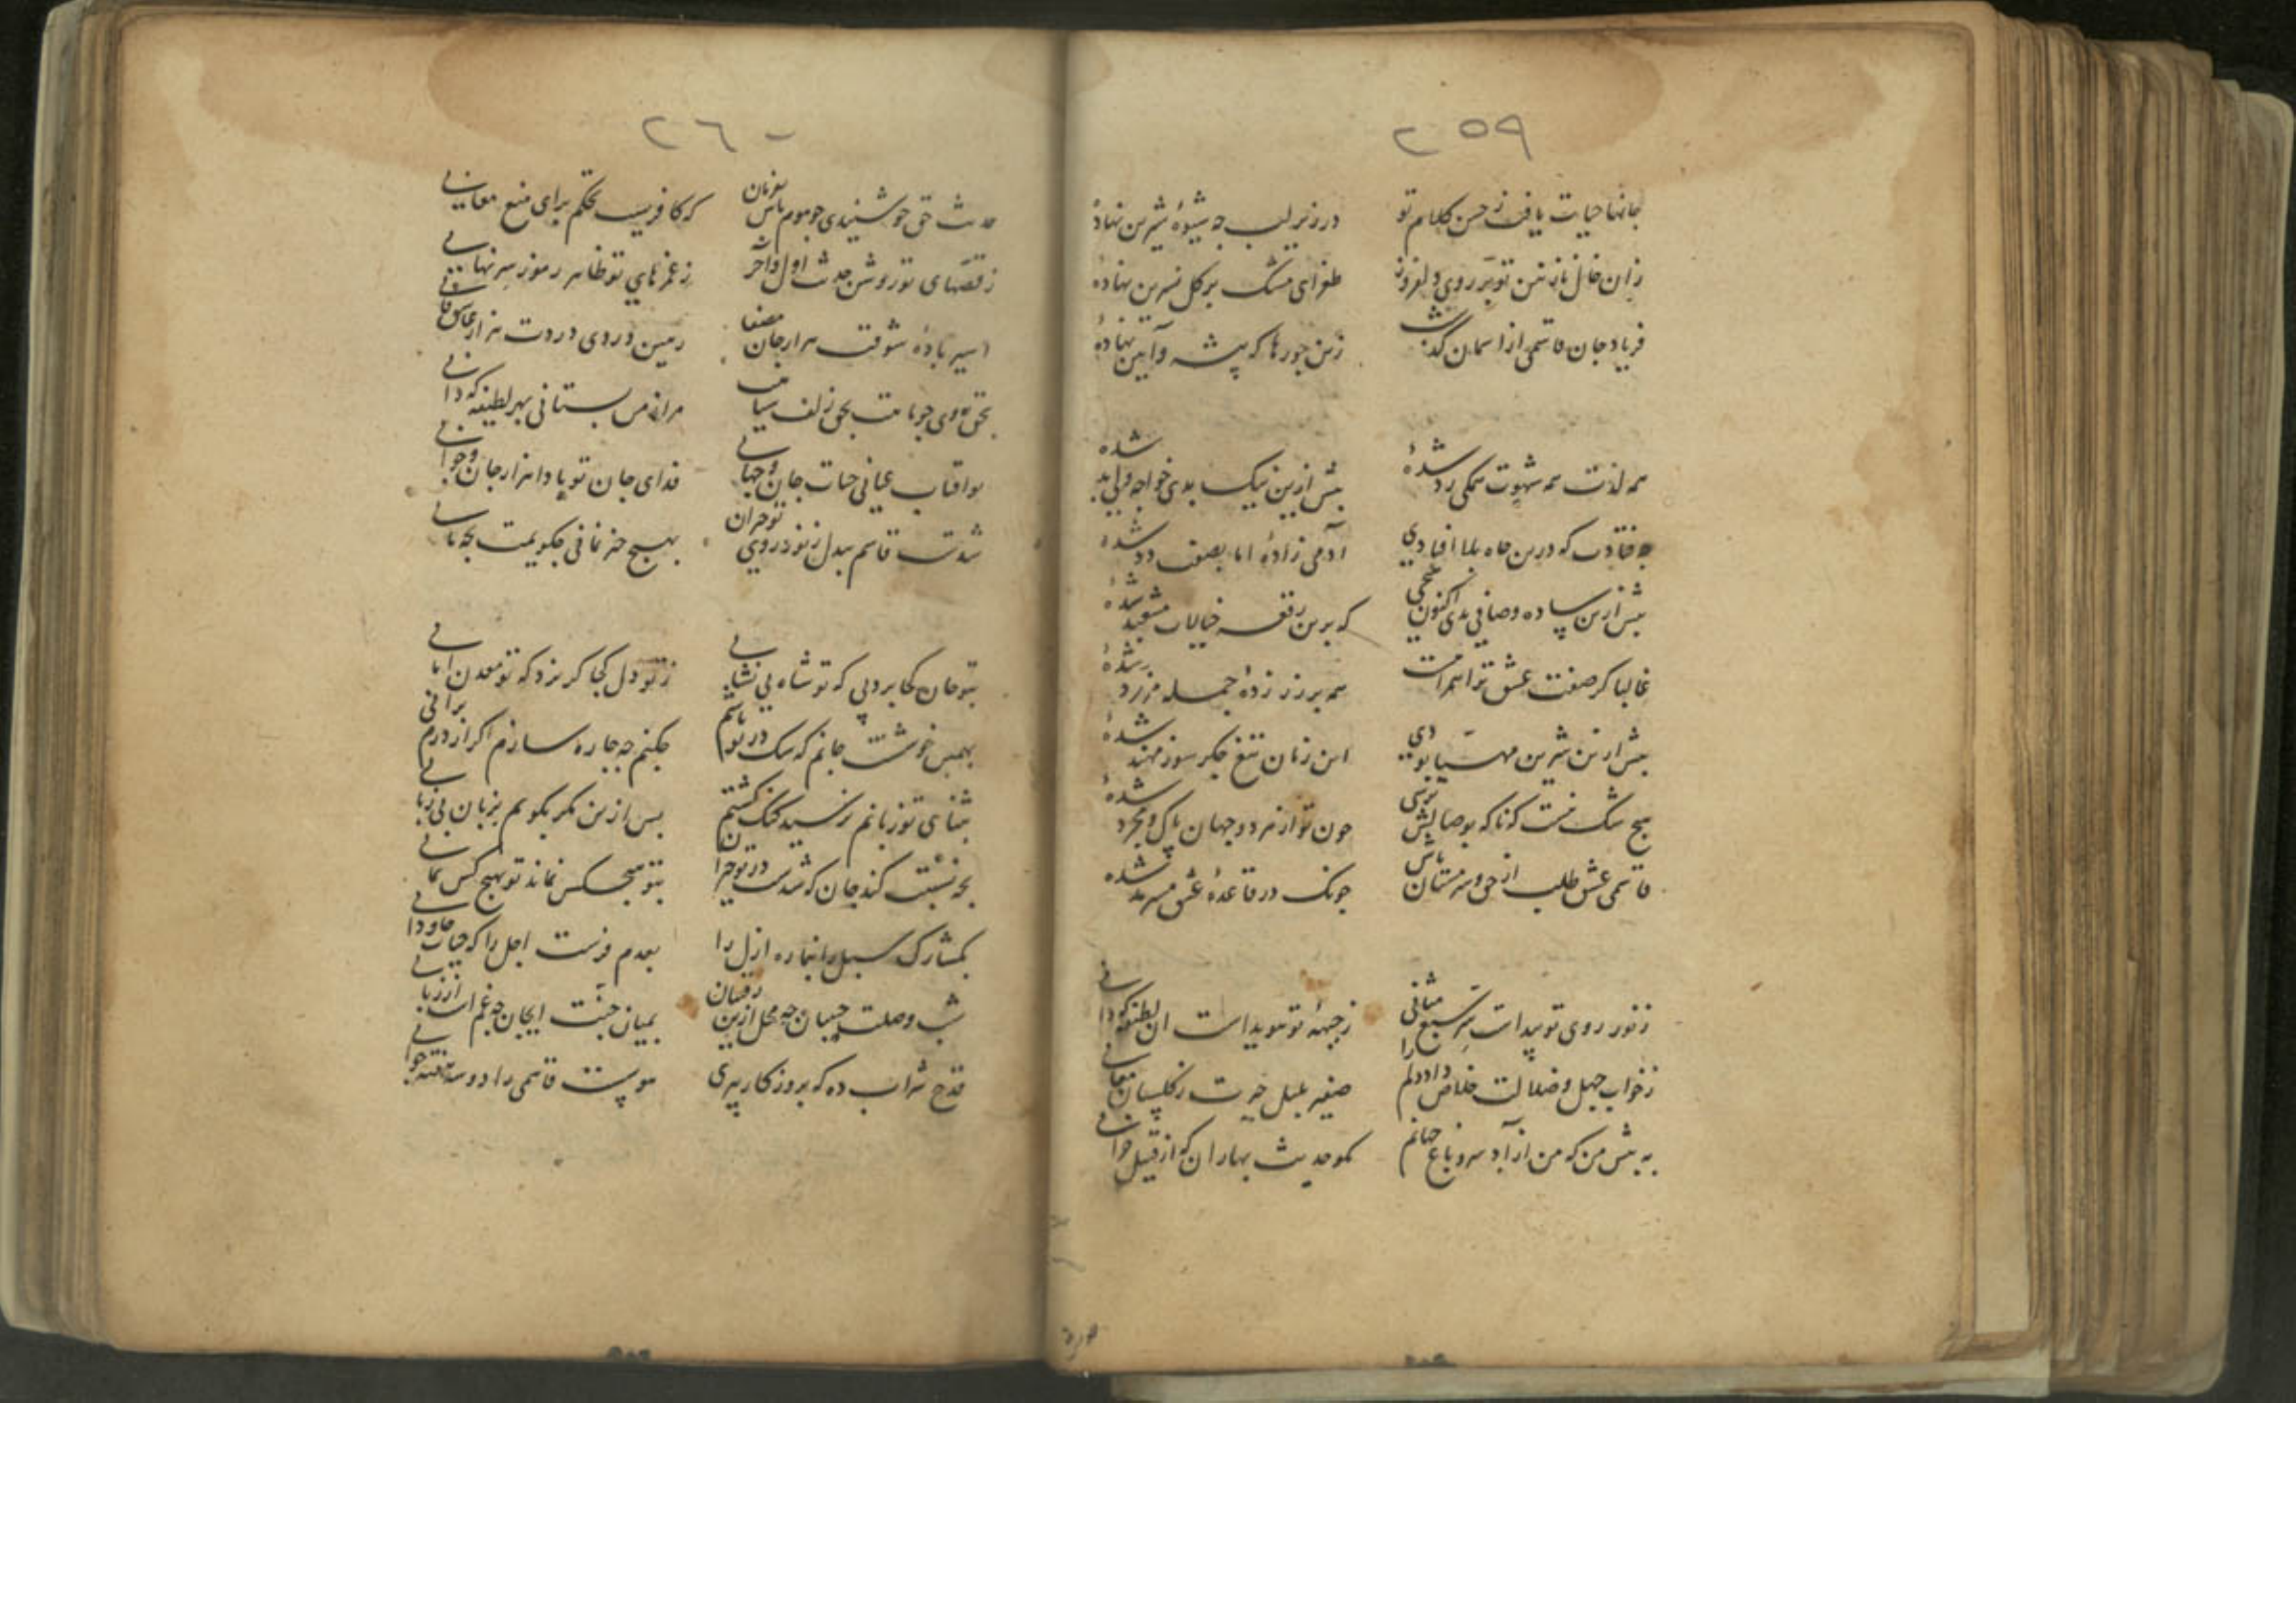 ٢٥٩
جانها حیات یافت ز حسن کلام تو در زیر لب چه شیوهٔ شیرین نهادهٔ
زان خال نازنین تو بر روی دلفروز طغرای مشک بر گل نسرین نهادهٔ
فریاد جان قاسمی از اسمان گذشت زین جورها که پیشه و آیین نهادهٔ
همه لذت همه شهوت همکی رد شدهٔ پیش ازین نیک بدی خواجه ولی بد شدهٔ
چه فتادت که درین چاه بلا افتادی آدمی زادهٔ اما بصفت دد شدهٔ
پیش ازین ساده و صافی بدی اکنون که برین رقعه خیالات مشعبد شدهٔ
غالبا کز صفت عشق ترا همه بر زر زدهٔ جمله مزرد شدهٔ
پیش ازین شیرین مهیا بودی این زمان تیغ جکر سوز مهند شدهٔ
هیچ شک نیست که ناکه بوصالش برسی چون تو از هر دو جهان پاک و مجرد شدهٔ
قاسمی عشق طلب از می و مستان باش چونک در قاعدهٔ عشق شدهٔ
ز نور روی تو پیداست سر سبع مثانی ز جبههٔ تو هویداست ان لطیفه که دانی
ز خواب جهل و ضلالت خلاص داد دلم را صفیر بلبل حیرت ز گلستان معانی
به پیش من که من ازاد سرو باغ جهانم مکو حدیث بهاران که از قبیل خزانی
٢٦٠
حدیث حق چو شنیدی چو موم باش بفرمان که کافریست تحکم برای منع معانی
ز قصهای تو روشن حدیث اول و آخر ز غمزهای تو ظاهر رموز سر نهانی
اسیر بادهٔ شوقت هزار جان مصفا رهین دردی دردت هزار عاشق فانی
بحق روی چو ماهت بحق زلف سیاهت مرا ز من بستانی بهر لطیفه که دانی
تو افتاب عیانی حیات جان و جهانی فدای جان تو بادا هزار جان و جوانی
شدست قاسم بیدل ز نور روی تو حیران بهیچ چیز نمانی چکویمت بچه مانی
ز تو جان کجا برد پی که تو شاه بی نشانی ز تو دل کجا کریزد که تو معدن امانی
بهمین خوشست جانم که سک در تو باشم چکنم چه چاره سازم اکر از درم برانی
بثنای تو زبانم نرسید کنک کشتم پس ازین مکر بکویم بزبان بی زبانی
بچه نسبت کند جان که شدست در تو حیران بتو هیچکس نماند تو بهیچ کس نمانی
راه ازل را بعدم فرست اجل را که حیات جاودانی
شب وصلت حبیبان چه محل ازین رقیبان بمیان جنت ای جان چه غم است از زبانی
قدح شراب ده که بروز کار پیری قاسمی را